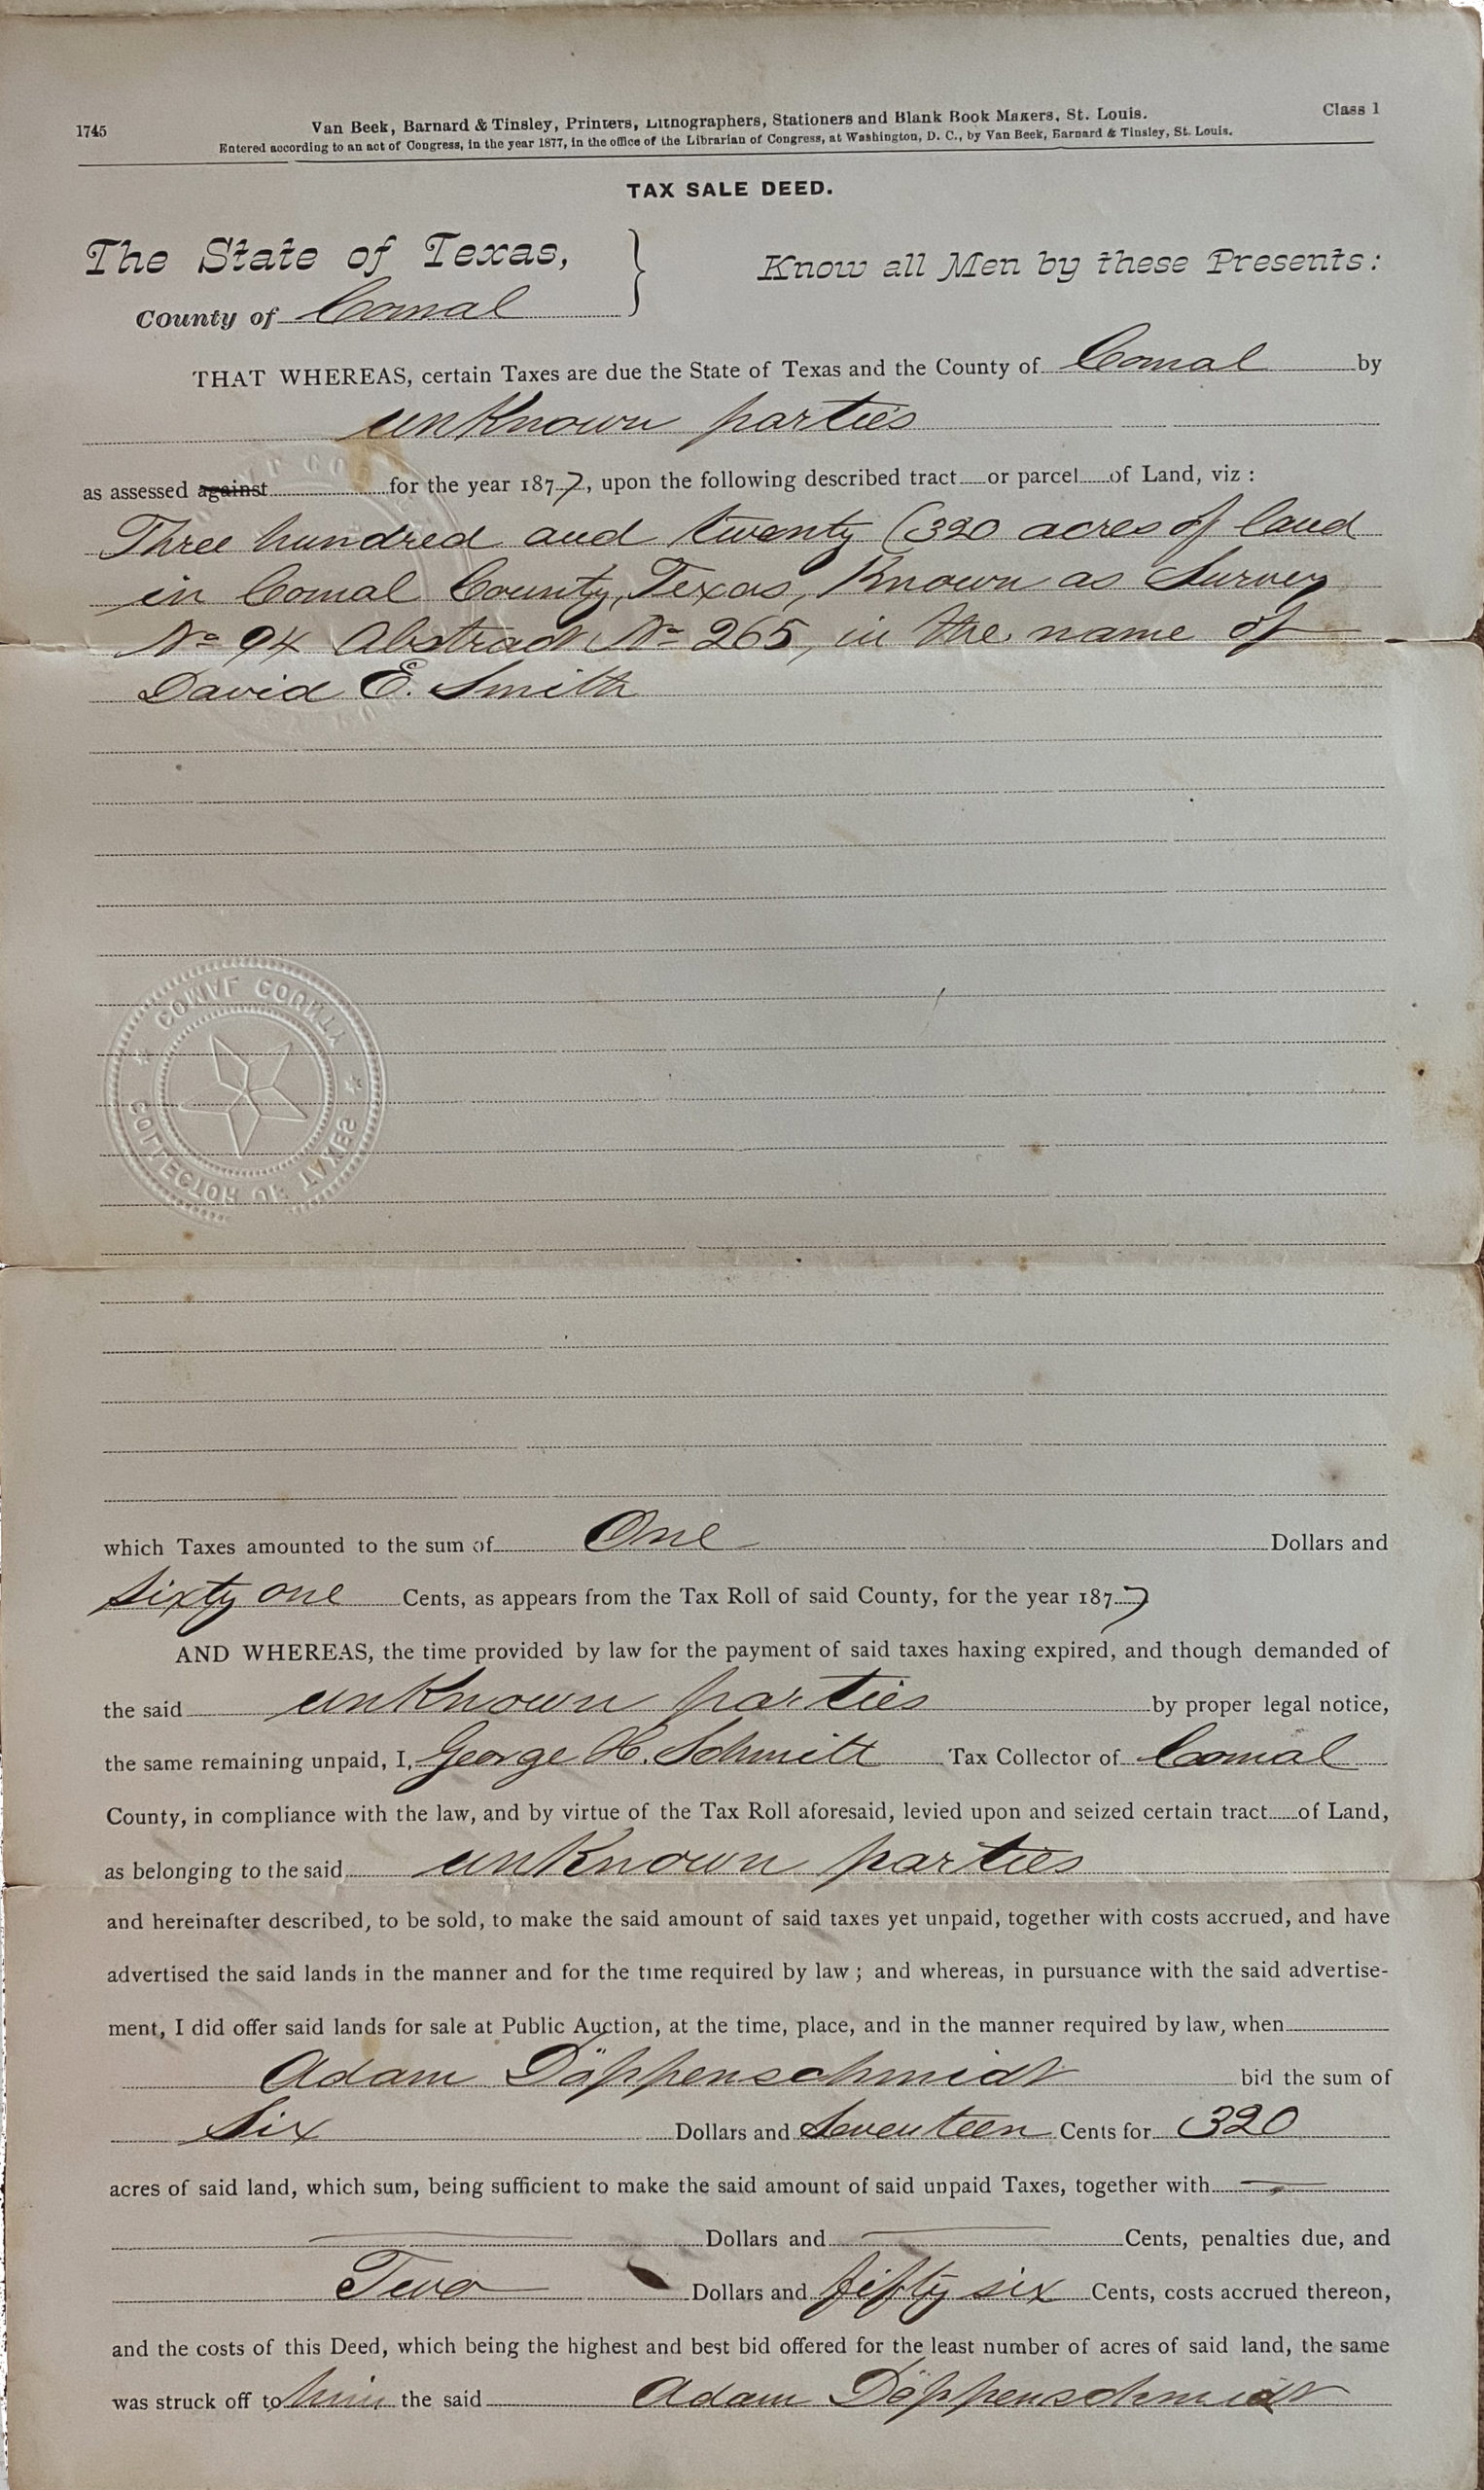 1745
Van Beek, Barnard & Tinsley, Printers, Lithographers, Stationers and Blank Book Makers, St. Louis.
Class 1
Entered according to an act of Congress, in the year 1877, in the office of the Librarian of Congress, at Washington, D. C., by Van Beek, Barnard & Tinsley, St. Louis.
TAX SALE DEED.
The State of Texas, } Know all Men by these Presents:
County of Comal
THAT WHEREAS, certain Taxes are due the State of Texas and the County of Comal by
unknown parties
as assessed against for the year 1877, upon the following described tract or parcel of Land, viz :
Three hundred and twenty (320 acres of land
in Comal County, Texas, Known as Survey
No 94 Abstract No 265, in the name of
David E. Smith
COMAL COUNTY
COLLECTOR OF TAXES
which Taxes amounted to the sum of One Dollars and
sixty one Cents, as appears from the Tax Roll of said County, for the year 1877
AND WHEREAS, the time provided by law for the payment of said taxes haxing expired, and though demanded of
the said unknown parties by proper legal notice,
the same remaining unpaid, I, George H. Schmitt Tax Collector of Comal
County, in compliance with the law, and by virtue of the Tax Roll aforesaid, levied upon and seized certain tract of Land,
as belonging to the said unknown parties
and hereinafter described, to be sold, to make the said amount of said taxes yet unpaid, together with costs accrued, and have
advertised the said lands in the manner and for the time required by law ; and whereas, in pursuance with the said advertise-
ment, I did offer said lands for sale at Public Auction, at the time, place, and in the manner required by law, when
Adam Döppenschmidt bid the sum of
Six Dollars and Seventeen Cents for 320
acres of said land, which sum, being sufficient to make the said amount of said unpaid Taxes, together with
Dollars and Cents, penalties due, and
Two Dollars and fifty six Cents, costs accrued thereon,
and the costs of this Deed, which being the highest and best bid offered for the least number of acres of said land, the same
was struck off to him the said Adam Döppenschmidt